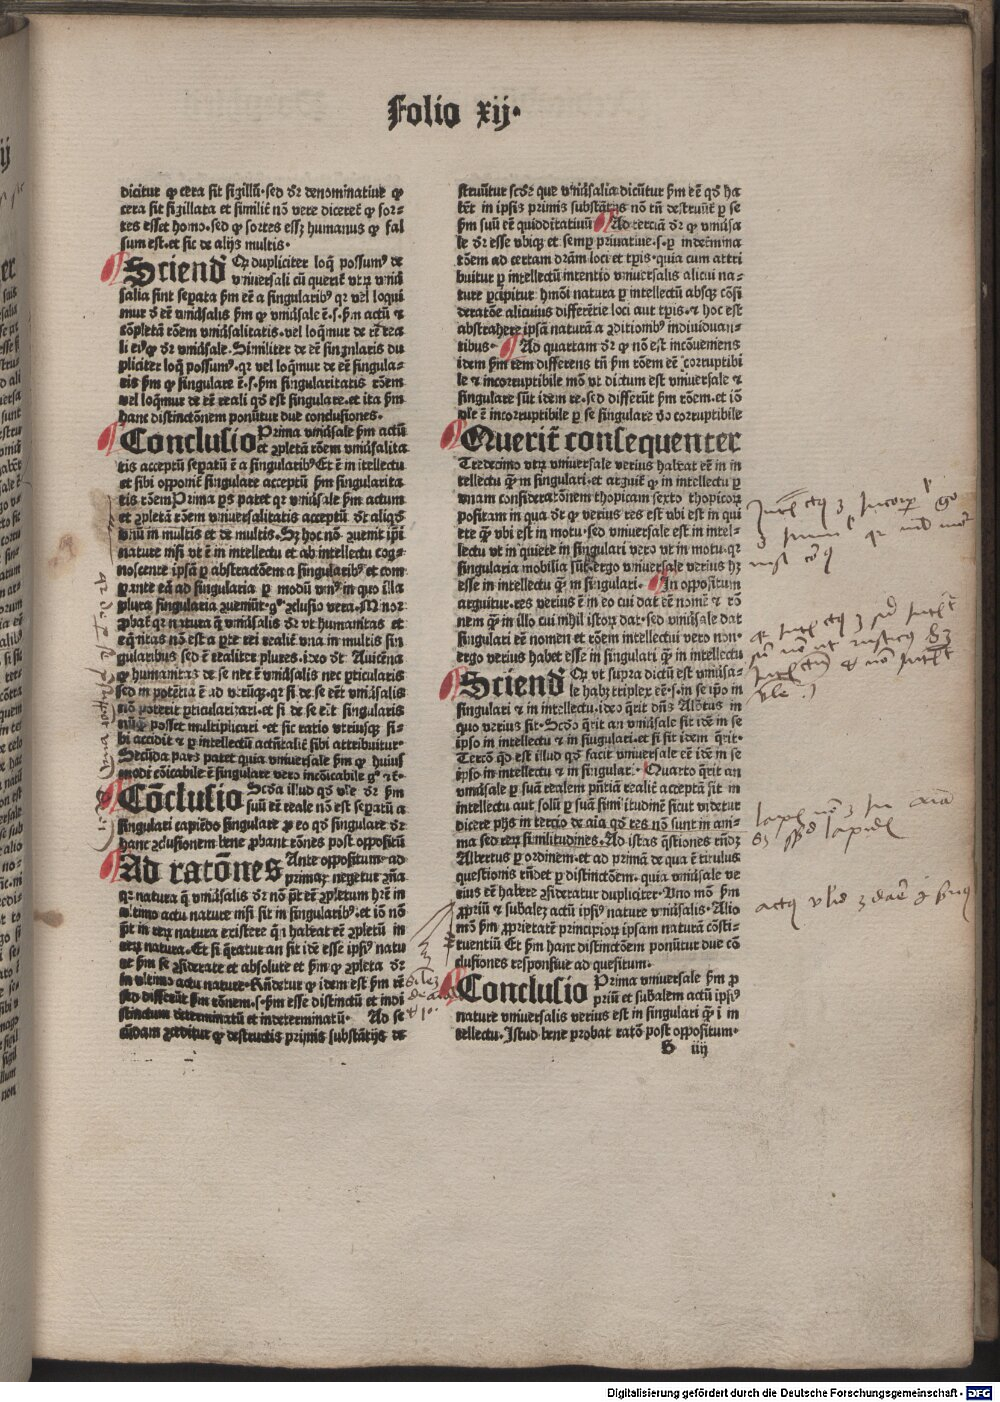 Folio xij.
dicitur ꝙ cera sit sigillũ. sed dr̄ denominatiue ꝙ
cera sit sigillata et similiẗ nō vere diceret̃ ꝙ sor-
tes esset homo. sed ꝙ sortes essꝫ humanus ꝙ fal
sum est. et sic de alijs multis.
Sciend Ꝙ dupliciter loq̃ possumꝰ de
vniuersali cũ querit̃ vtꝝ vniũ
salia sint seꝑata ẜm eē a singularibꝰ qꝛ vel loqui
mur ð eē vniũsalis ẜm ꝙ vniũsale ē. s. ẜm actũ ⁊
cōpletã rōem vniũsalitatis. vel loq̃mur de eē rea
li eiꝰ ꝙ dr̄ vniũsale. Similiter de eē singularis du
pliciter loq̃ possumꝰ. qꝛ vel loq̃mur de eē singula-
ris ẜm ꝙ singulare ē. s. ẜm singularitatis rōem.
vel loq̃mur de eē reali qð est singulare. et ita ẜm
hanc distinctōnem ponũtur due conclusiones.
Conclusio Prima vniũsale ẜm actũ
et ꝯpletã rōem vniũsalita
tis acceptũ seꝑatũ ē a singularibꝰ Et ē in itellectu
et sibi opponiẗ singulare acceptũ ẜm singularita
tis rōem Prima ꝑs patet qꝛ vniũsale ẜm actum
et ꝯpletã rōem vniuersalitatis acceptũ dr̄ aliqð
vnũ in multis et de multis. Sꝫ hoc nō ꝯuenit ipi
nature nisi vt ē in intellectu et ab intellectu cog-
noscente ipsã ꝑ abstractōem a singularibꝰ et com
ꝑante eã ad singularia ꝑ modũ vniꝰ in quo illa
plura singularia ꝯueniũt. gͦ ꝯclusio vera. Minor
ꝓbat̃ qꝛ natura q̃ vniũsalis dr̄ vt humanitas et
eq̃nitas nō est a ꝑte rei realiẗ vna in multis sin
gularibus sed ē realiter plures. iðo dt̃ Auicēna
ꝙ humanitas de se nec ē vniũsalis nec ꝑticularis
sed in potētia ē ad vtrũqꝫ. qꝛ si de se eēt vniũsalis
nō poterit ꝑticularizari. et si de se eēt singularis
nũq̃ posset multiplicari. et sic ratio vtriusqꝫ si-
bi accidit ⁊ ꝑ intellectũ accñtaliẗ sibi attribuitur.
Secũda pars patet quia vniuersale ẜm ꝙ huius
modi cōicabile ē singulare vero incōicabile gͦ ⁊c̃.
Cōclusio Scða illud qð vl̃e dr̄ ẜm
suũ eē reale nō est seꝑatũ a
singulari capiēdo singulare ꝓ eo qð singulare dr̄
hanc ꝯclusionem bene ꝓbant rōnes post oppositũ
Ad ratōnes Ante oppositum. ad
primaꝫ negetur ꝯña
qꝛ natura q̃ vniũsalis dr̄ nō pt̃ eē ꝯpletum hr̃e in
vltimo actu nature nisi sit in singularibꝰ. et iō nō
pt̃ in reꝝ natura existere q̃n habeat eē ꝯpletũ in
reꝝ natura. Et si q̃ratur an sit idē esse ipsiꝰ natu
re ẜm se ꝯsiderate et absolute et ẜm ꝙ ꝯpleta dr̄
in vltimo actu nature. Rñdetur ꝙ idem est ẜm rē
sed differũt ẜm rōnem. s. ẜm esse distinctũ et indi
stinctum determinatũ et indeterminatũ. Ad se
cũdam ꝯceditur ꝙ destructis primis substātijs de
struũtur scðe que vniũsalia dicũtur ẜm eē qð ha
bēt in ipsis primis substātijs nō tñ destruũt̃ ꝑ se
ẜm suũ eē quidditatiuũ Ad terciã dr̄ ꝙ vniũsa
le dr̄ esse vbiqꝫ et semꝑ priuatiue. s. ꝑ indet̃mina
tōem ad certam dr̃am loci et tꝑis. quia cum attri
buitur ꝑ intellectũ intentio vniuersalis alicui na-
ture ꝑcipitur hmōi natura ꝑ intellectũ absqꝫ cōsi
deratōe alicuius differētie loci aut tꝑis. ⁊ hoc est
abstrahere ipsã naturã a ꝯditionibꝰ indiuiduan-
tibus. Ad quartam dr̄ ꝙ nō est incōueniens
idem ẜm rem differens tñ ẜm rōem eē corruptibi
le ⁊ incorruptibile mō vt dictum est vniuersale ⁊
singulare sũt idem re. sed differũt ẜm rōem. et iō
vl̃e ē incorruptibile ꝑ se singulare ðo corruptibile
Querit̃ consequenter
Tredecimo vtꝝ vniuersale verius habeat eē in in
tellectu q̃ꝫ in singulari. et arguit̃ ꝙ in intellectu ꝑ
vnam consideratōnem thopicam sexto thopicoꝝ
positam in qua dr̄ ꝙ verius res est vbi est in qui
ete q̃ꝫ vbi est in motu. sed vniuersale est in intel-
lectu vt in quiete in singulari vero vt in motu. qꝛ
singularia mobilia sũt. ergo vniuersale verius hꝫ
esse in intellectu q̃ꝫ in singulari. In oppositum
arguitur. res verius ē in eo cui dat eē nomē ⁊ rō
nem q̃ꝫ in illo cui nihil istoꝝ dat. sed vniũsale dat
singulari eē nomen et rōem intellectui vero non.
ergo verius habet esse in singulari q̃ꝫ in intellectu
Sciend Ꝙ vt supra dictũ est vniũsa-
le habꝫ triplex eē. s. in se ip̄o in
singulari ⁊ in intellectu. ideo q̃rit dñs Albtũs in
quo verius sit. Scðo q̃rit an vniũsale sit idē in se
ipso in intellectu ⁊ in singulari. et si sit idem q̃rit.
Tercō qð est illud qð facit vniuersale eē idē in se
ip̄so in intellectu ⁊ in singulari. Quarto q̃rit an
vniũsale ꝑ suã realem p̄ntiã realiẗ acceptã sit in
intellectu aut solũ ꝑ suã similitudinē sicut videtur
dicere ph̄s in tercio de aĩa qð res nō sunt in ani-
ma sed reꝝ similitudines. Ad istas q̃stiones rñdꝫ
Albertus ꝑ ordinem. et ad primã de qua ē titulus
questionis rñdet ꝑ distinctōem. quia vniũsale ve
rius eē habere ꝯsideratur dupliciter. Vno mō ẜm
ꝓpriũ ⁊ subalem actũ ipsiꝰ nature vniũsalis. Alio
mō ẜm ꝓprietatē principioꝝ ipsam naturã cōsti-
tuentiũ Et ẜm hanc distinctōem ponũtur due cō
clusiones responsiue ad quesitum.
Conclusio Prima vniuersale ẜm ꝓ
priũ et subalem actũ ipsiꝰ
nature vniuersalis verius est in singulari q̃ꝫ in in
tellectu. Istud bene probat ratō post oppositum.
B iiij
Digitalisierung gefördert durch die Deutsche Forschungsgemeinschaft - DFG